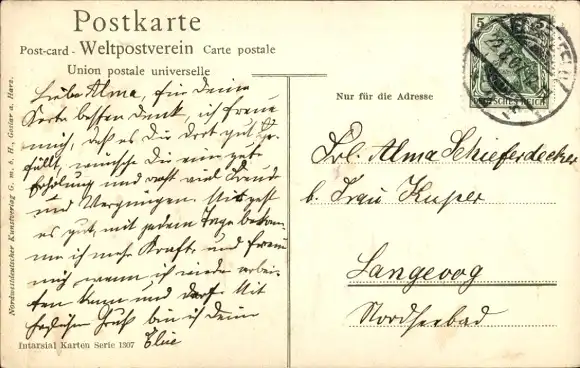 Postkarte
Post-card - Weltpostverein Carte postale
Union postale universelle
Nur für die Adresse
Liebe Alma, für Deine
Karte besten Dank, ich freue
mich, daß es Dir dort gut ge-
fällt, wünsche Dir eine gute
Erholung und recht viel Freude
und Vergnügen. Mir geht
es gut, mit jedem Tage bekom-
me ich mehr Kraft und freue
mich wenn ich wieder arbei-
ten kann und darf. Mit
herzlichem Gruß bin ich Deine
Frl. Alma Schieferdecker
b. Frau Kuper
Langeoog
Nordseebad
Intarsia Karten Serie 1307
Nordwestdeutscher Kunstverlag G. m. b. H., Goslar a. Harz.
5 5
DEUTSCHES REICH